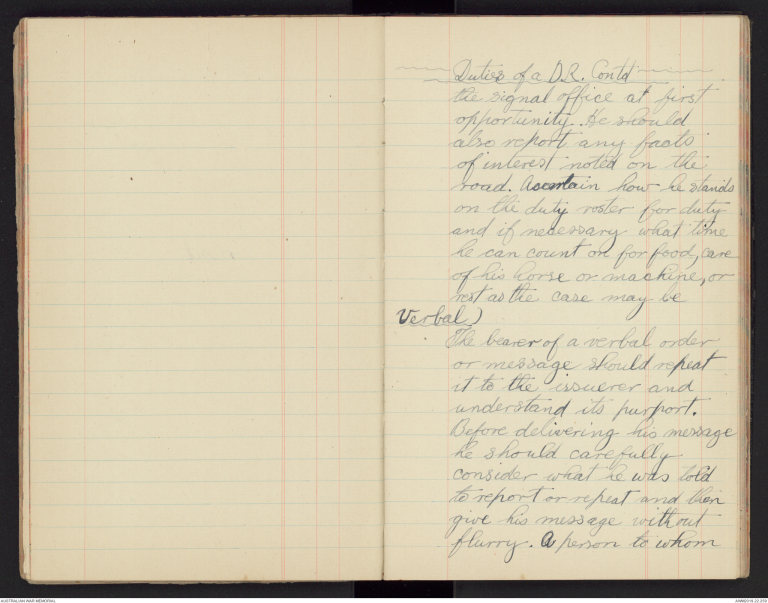 Duties of a D.R. Contd
the signal office at first
opportunity. He should
also report any facts
of interest noted on the
road. Ascertain how he stands
on the duty roster for duty
and if necessary what time
he can count on for food, care
of his horse or machine, or
rest as the case may be
Verbal)
The bearer of a verbal order
or message should repeat
it to the issuerer and
understand its purport.
Before delivering his message
he should carefully
consider what he was told
to report or repeat and then
give his message without
flurry. A person to whom
AUSTRALIAN WAR MEMORIAL